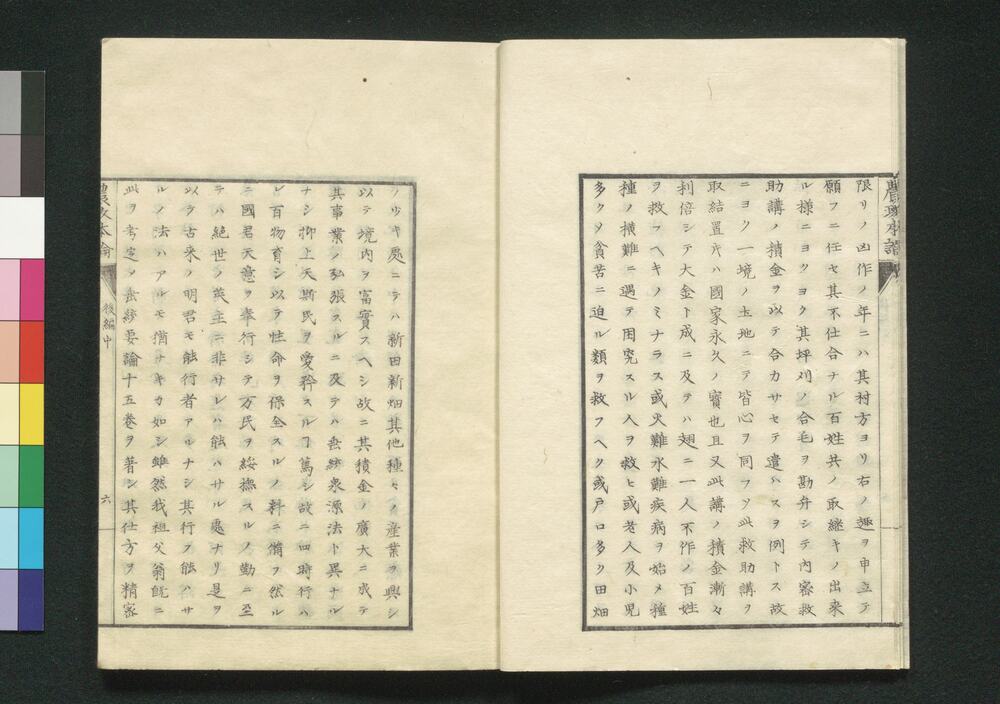 農政本論
限リノ凶作ノ年ニハ其村方ヨリ右ノ趣ヲ申立テ
願フニ任セ其不仕合ナル百姓共ノ取継キノ出来
ル様ニヨクヨク其坪刈ノ合毛ヲ勘弁シテ内密救
助講ノ積金ヲ以テ合力サセテ遣ハスヲ例トス故
ニヨク一境ノ土地ニテ皆心ヲ同フソ此救助講ヲ
取結置片ハ國家永久ノ寶也且又此講ノ積金漸々
利倍シテ大金ト成ニ及テハ翅ニ一人不作ノ百姓
ヲ救フヘキノミナラス或火難水難疾病ヲ始メ種
種ノ横難ニ遇テ困究スル人ヲ救ヒ或老人及小児
多クソ貧苦ニ迫ル類ヲ救フヘク或戸口多クソ田畑
ノ少キ處ニテハ新田新畑其他種々ノ産業ヲ興シ
以テ境内ヲ富實スヘシ故ニ其積金ノ廣大ニ成テ
其事業ノ弘張スルニ及テハ垂統泉源法ト異ナル
ナシ抑上天斯民ヲ愛矜スルヿ篤シ故ニ四時行ハ
レ百物育シ以テ性命ヲ保全スルノ料ニ備フ然ル
ニ國君天意ヲ奉行シテ万民ヲ綏撫スルノ勤ニ至
テハ絶世ノ英主ニ非サレハ能ハサル處ナリ是ヲ
以テ古来ノ明君モ能行者アルナシ其行フ能ハサ
ルノ法ハアルモ猶ナキカ如シ雖然我祖父翁既ニ
此ヲ考定ソ垂統要論十五巻ヲ著シ其仕方ヲ精密
農政本論
後編中
六